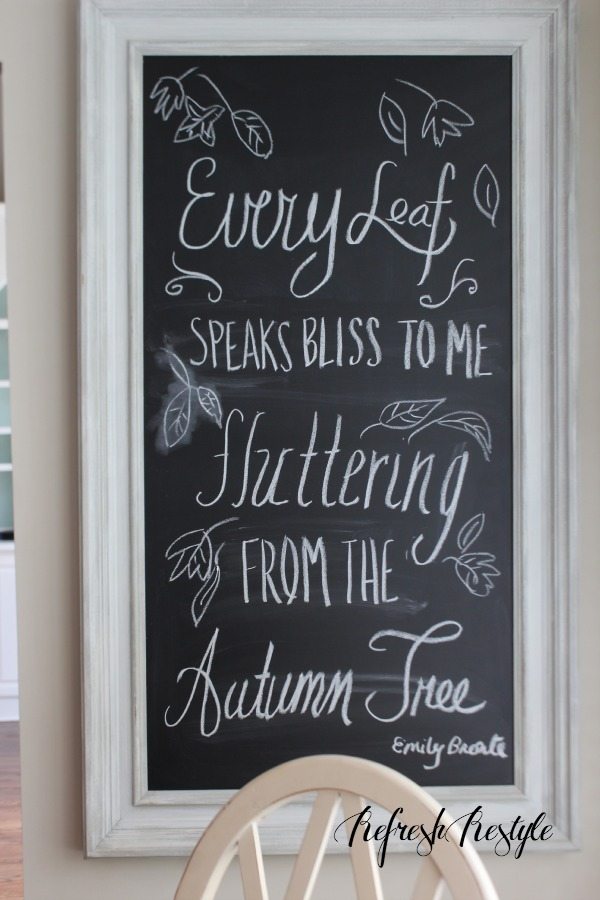 Every Leaf
SPEAKS BLISS TO ME
fluttering
FROM THE
Autumn Tree
Emily Bronte
Refresh Restyle